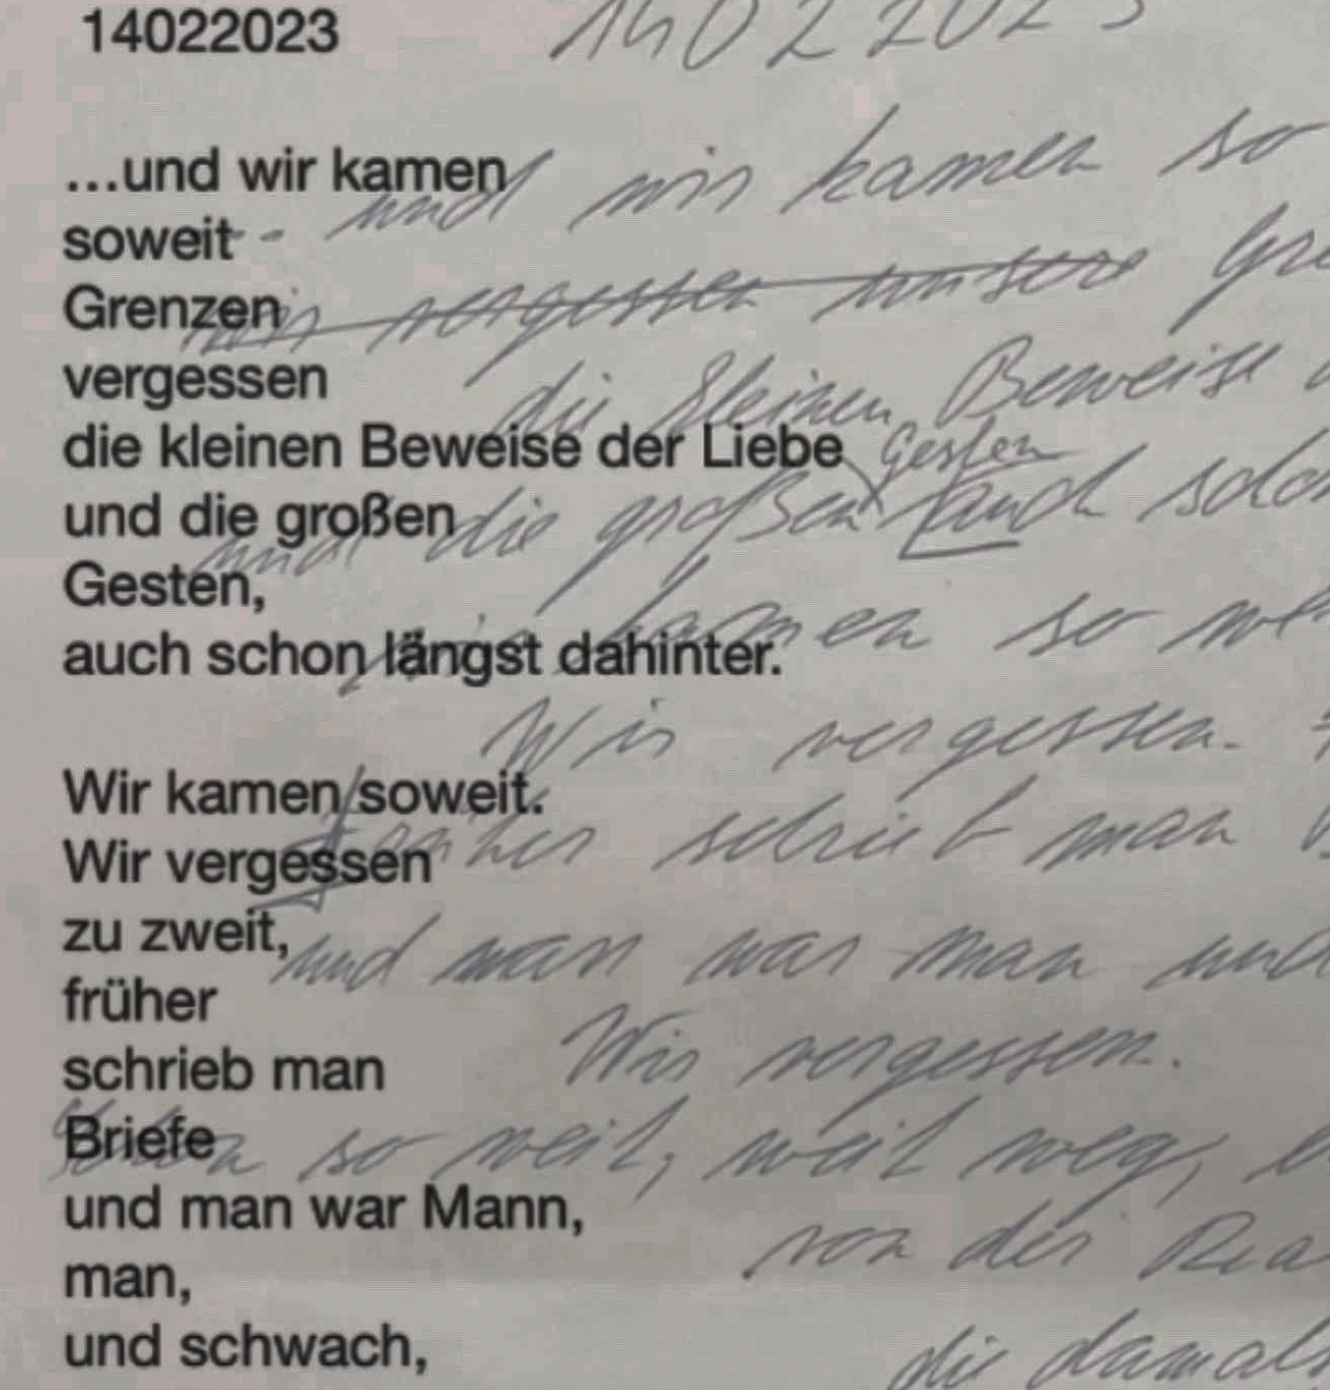 14022023
14022023
...und wir kamen
soweit
Grenzen
vergessen
die kleinen Beweise der Liebe
und die großen
Gesten,
auch schon längst dahinter.
Wir kamen soweit.
Wir vergessen
zu zweit,
früher
schrieb man
Briefe
und man war Mann,
man,
und schwach,
und wir kamen so
wir vergessen unsere
die kleinen Beweise
Gesten
und die großen auch
kamen so
Wir vergessen.
früher schrieb man
und man war man und
Wir vergessen.
schon so weit, weit weg,
von der
die damals